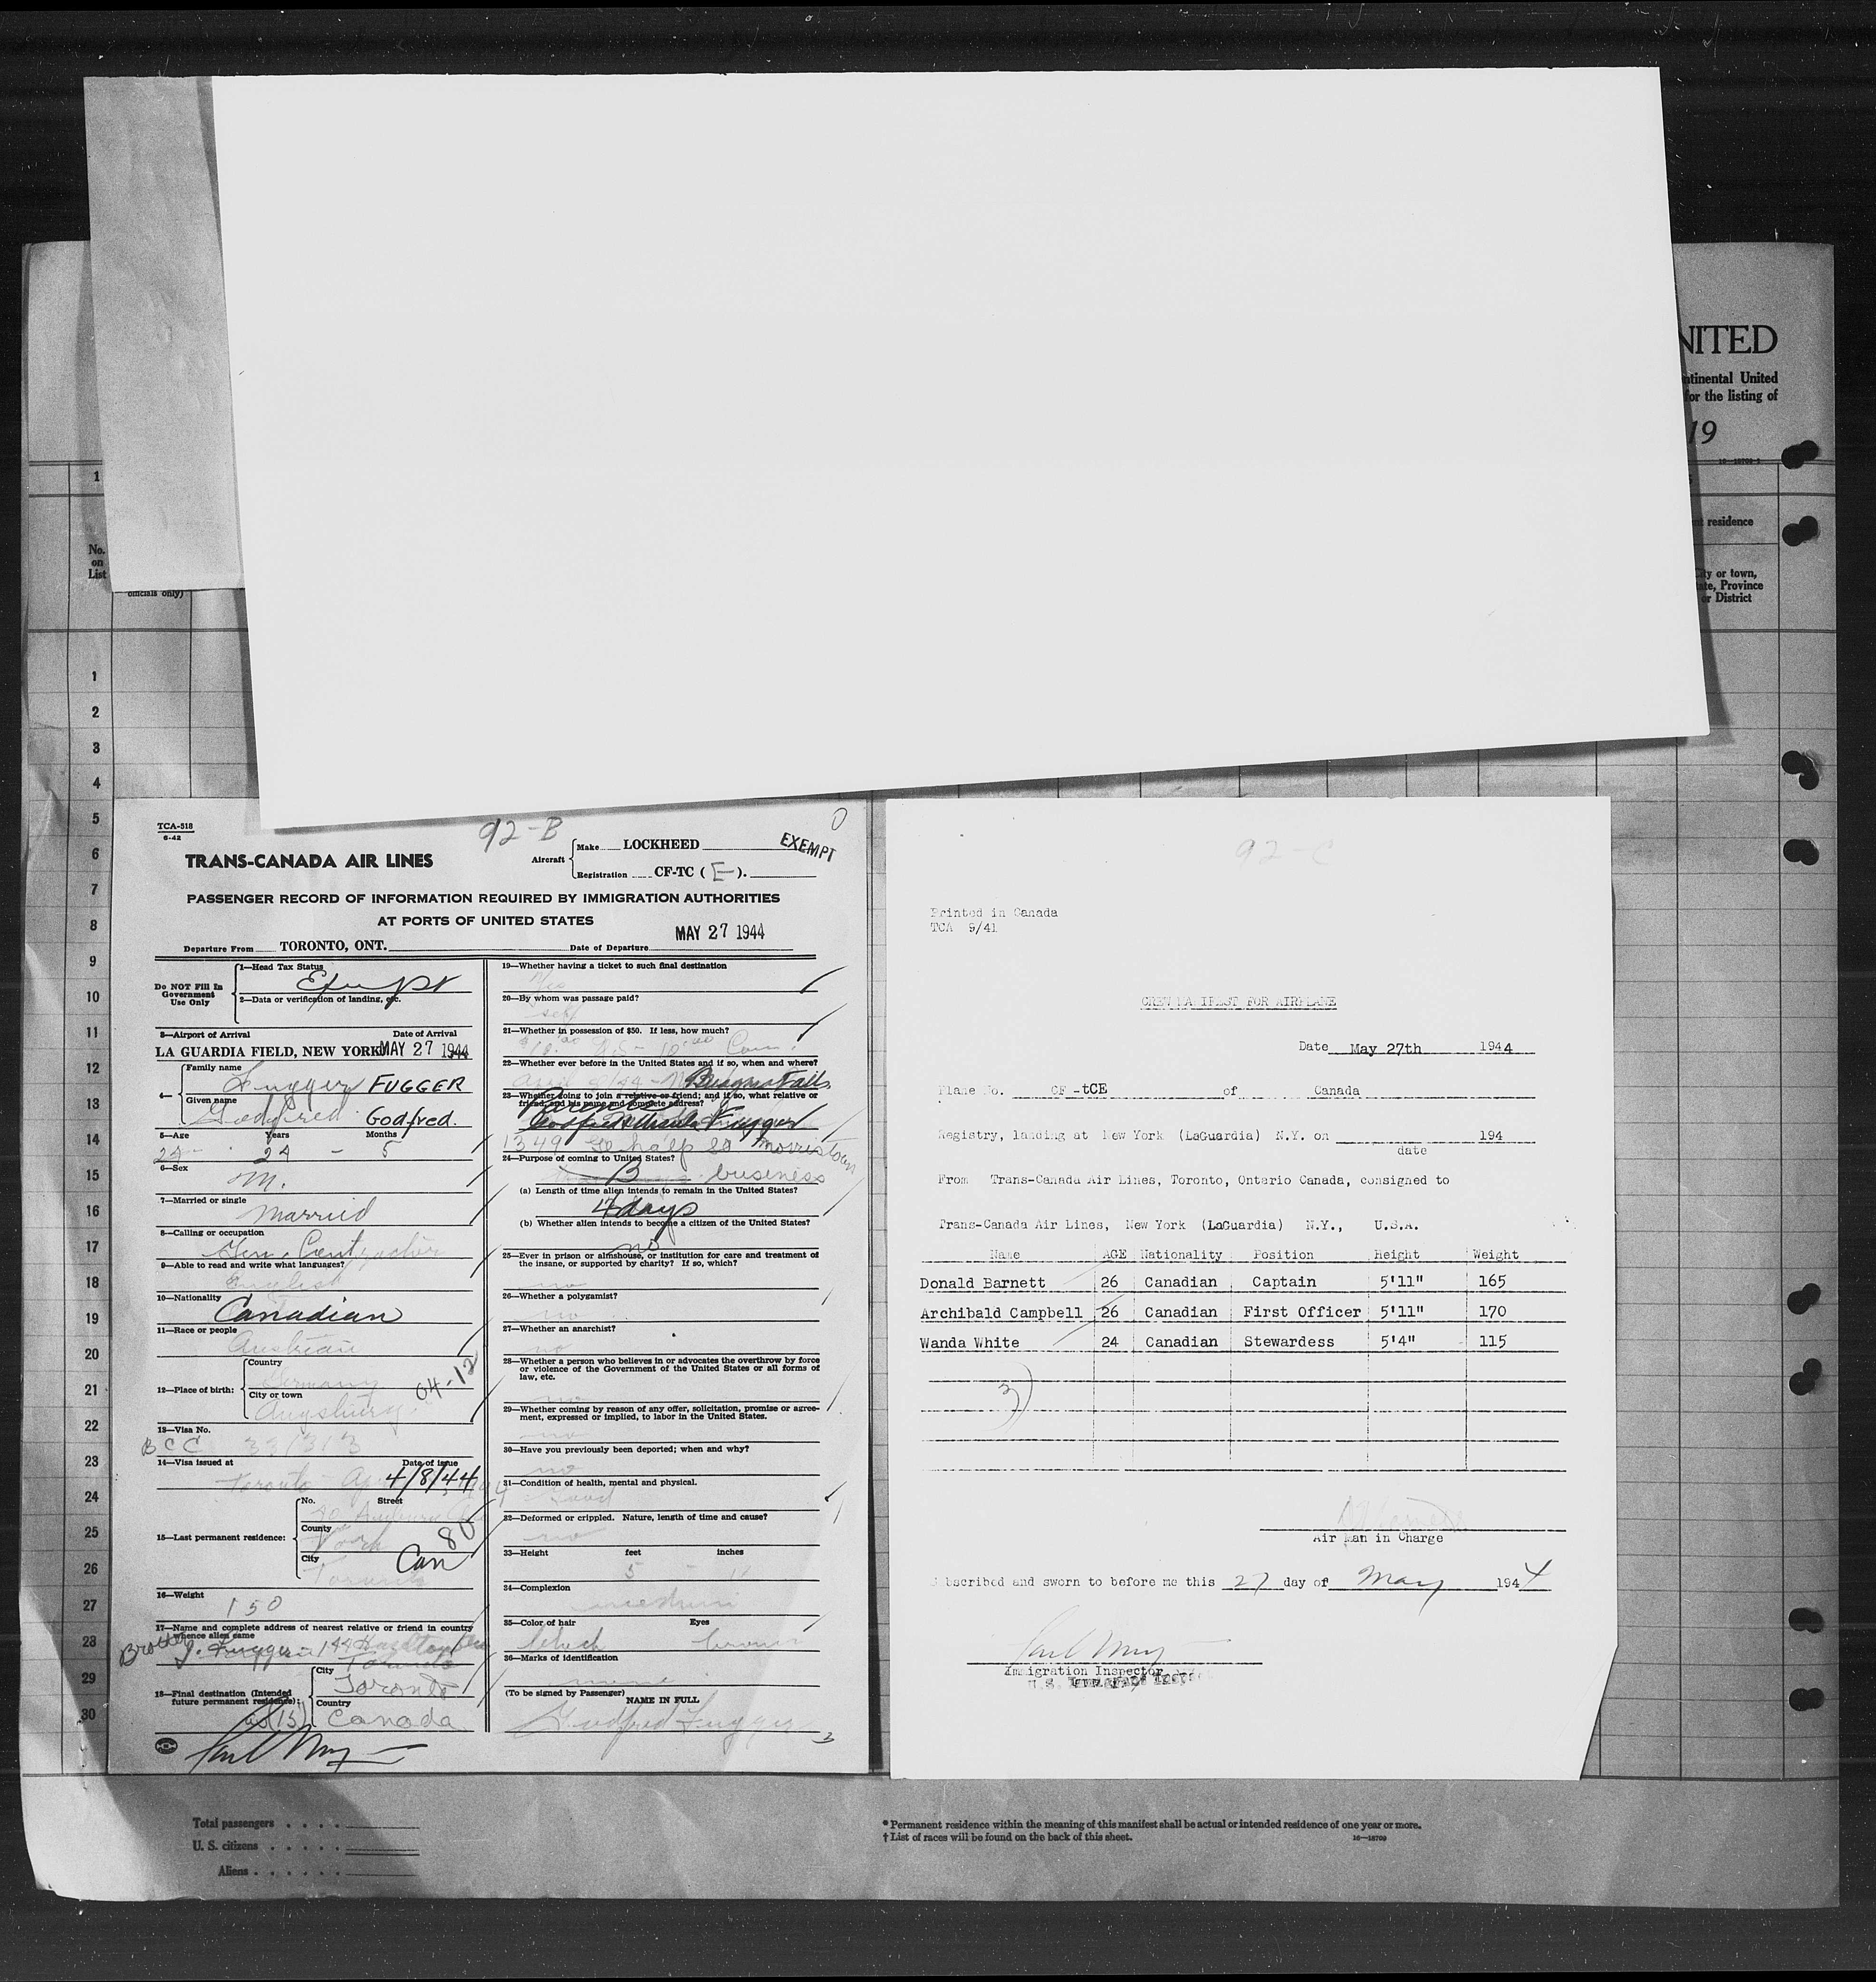 NITED
ntinental United
for the listing of
19
1
nt residence
No.
on
List
City or town,
ate, Province
or District
officials only)
1
2
3
4
5
6
7
8
9
10
11
12
13
14
15
16
17
18
19
20
21
22
23
24
25
26
27
28
29
30
TCA-518
6-42
92-B
0
EXEMPT
TRANS-CANADA AIR LINES
Aircraft
Make LOCKHEED
Registration CF-TC ( E ).
PASSENGER RECORD OF INFORMATION REQUIRED BY IMMIGRATION AUTHORITIES
AT PORTS OF UNITED STATES
Departure From TORONTO, ONT. Date of Departure MAY 27 1944
Do NOT Fill In
Government
Use Only
1—Head Tax Status
Exempt
2—Data or verification of landing, etc.
3—Airport of Arrival Date of Arrival
LA GUARDIA FIELD, NEW YORK MAY 27 1944
4—
Family name
Fugger FUGGER
Given name
Godfred Godfred.
5—Age Years Months
24 24 - 5
6—Sex
M.
7—Married or single
Married
8—Calling or occupation
Gen. Contractor
9—Able to read and write what languages?
English
10—Nationality
Canadian
11—Race or people
Austrian
12—Place of birth:
Country
Germany
04-12
City or town
Augsburg
13—Visa No.
BCC 331313
14—Visa issued at Date of issue
Toronto 4/8/44
15—Last permanent residence:
No. Street
County
York
80
City
Can
Toronto
16—Weight
150
17—Name and complete address of nearest relative or friend in country
whence alien came
Brother J. Fugger - 144 Hazelton
Toronto
18—Final destination (Intended
future permanent residence):
City
Toronto
Country
Canada
(15)
Paul May
19—Whether having a ticket to such final destination
Yes
20—By whom was passage paid?
self
21—Whether in possession of $50. If less, how much?
22—Whether ever before in the United States and if so, when and where?
April Falls
23—Whether going to join a relative or friend; and if so, what relative or
friend, and his name and complete address?
Parents
Godfred Fugger
1349 Morristown
24—Purpose of coming to United States?
B business
(a) Length of time alien intends to remain in the United States?
4 days
(b) Whether alien intends to become a citizen of the United States?
no
25—Ever in prison or almshouse, or institution for care and treatment of
the insane, or supported by charity? If so, which?
no
26—Whether a polygamist?
no
27—Whether an anarchist?
no
28—Whether a person who believes in or advocates the overthrow by force
or violence of the Government of the United States or all forms of
law, etc.
no
29—Whether coming by reason of any offer, solicitation, promise or agree-
ment, expressed or implied, to labor in the United States.
no
30—Have you previously been deported; when and why?
no
31—Condition of health, mental and physical.
Good
32—Deformed or crippled. Nature, length of time and cause?
no
33—Height feet inches
5 - 11
34—Complexion
medium
35—Color of hair Eyes
black brown
36—Marks of identification
none
(To be signed by Passenger) NAME IN FULL
Godfred Fugger
3
92-C
Printed in Canada
TCA 9/41
CREW MANIFEST FOR AIRPLANE
Date May 27th 1944
Plane No. CF -tCE of Canada
Registry, landing at New York (LaGuardia) N.Y. on 194
date
From Trans-Canada Air Lines, Toronto, Ontario Canada, consigned to
Trans-Canada Air Lines, New York (LaGuardia) N.Y., U.S.A.
Name AGE Nationality Position Height Weight
Donald Barnett 26 Canadian Captain 5'11" 165
Archibald Campbell 26 Canadian First Officer 5'11" 170
Wanda White 24 Canadian Stewardess 5'4" 115
3)
Air Man in Charge
Subscribed and sworn to before me this 27 day of May 1944
Paul May
Immigration Inspector
Total passengers
U. S. citizens
Aliens
* Permanent residence within the meaning of this manifest shall be actual or intended residence of one year or more.
† List of races will be found on the back of this sheet.
16—18709